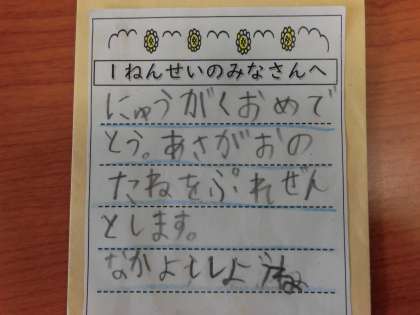 1ねんせいのみなさんへ
にゅうがくおめで
とう。あさがおの
たねをぷれぜん
とします。
なかよししようね